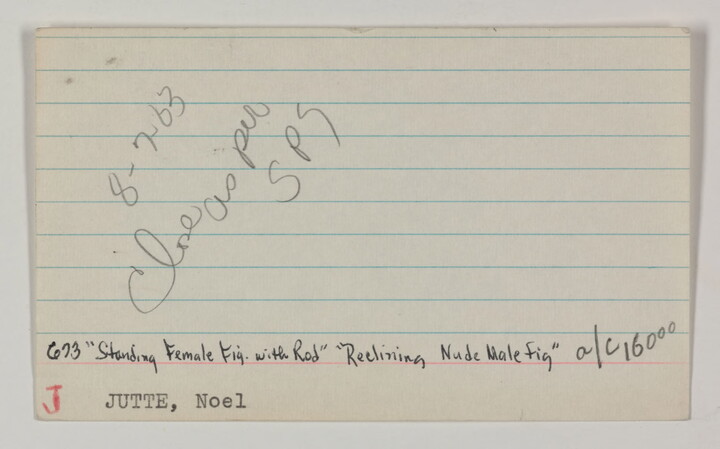 8-2-63
Close as per
SPS
673 "Standing Female Fig. with Rod" "Reclining Nude Male Fig" a/c 160 00
J JUTTE, Noel